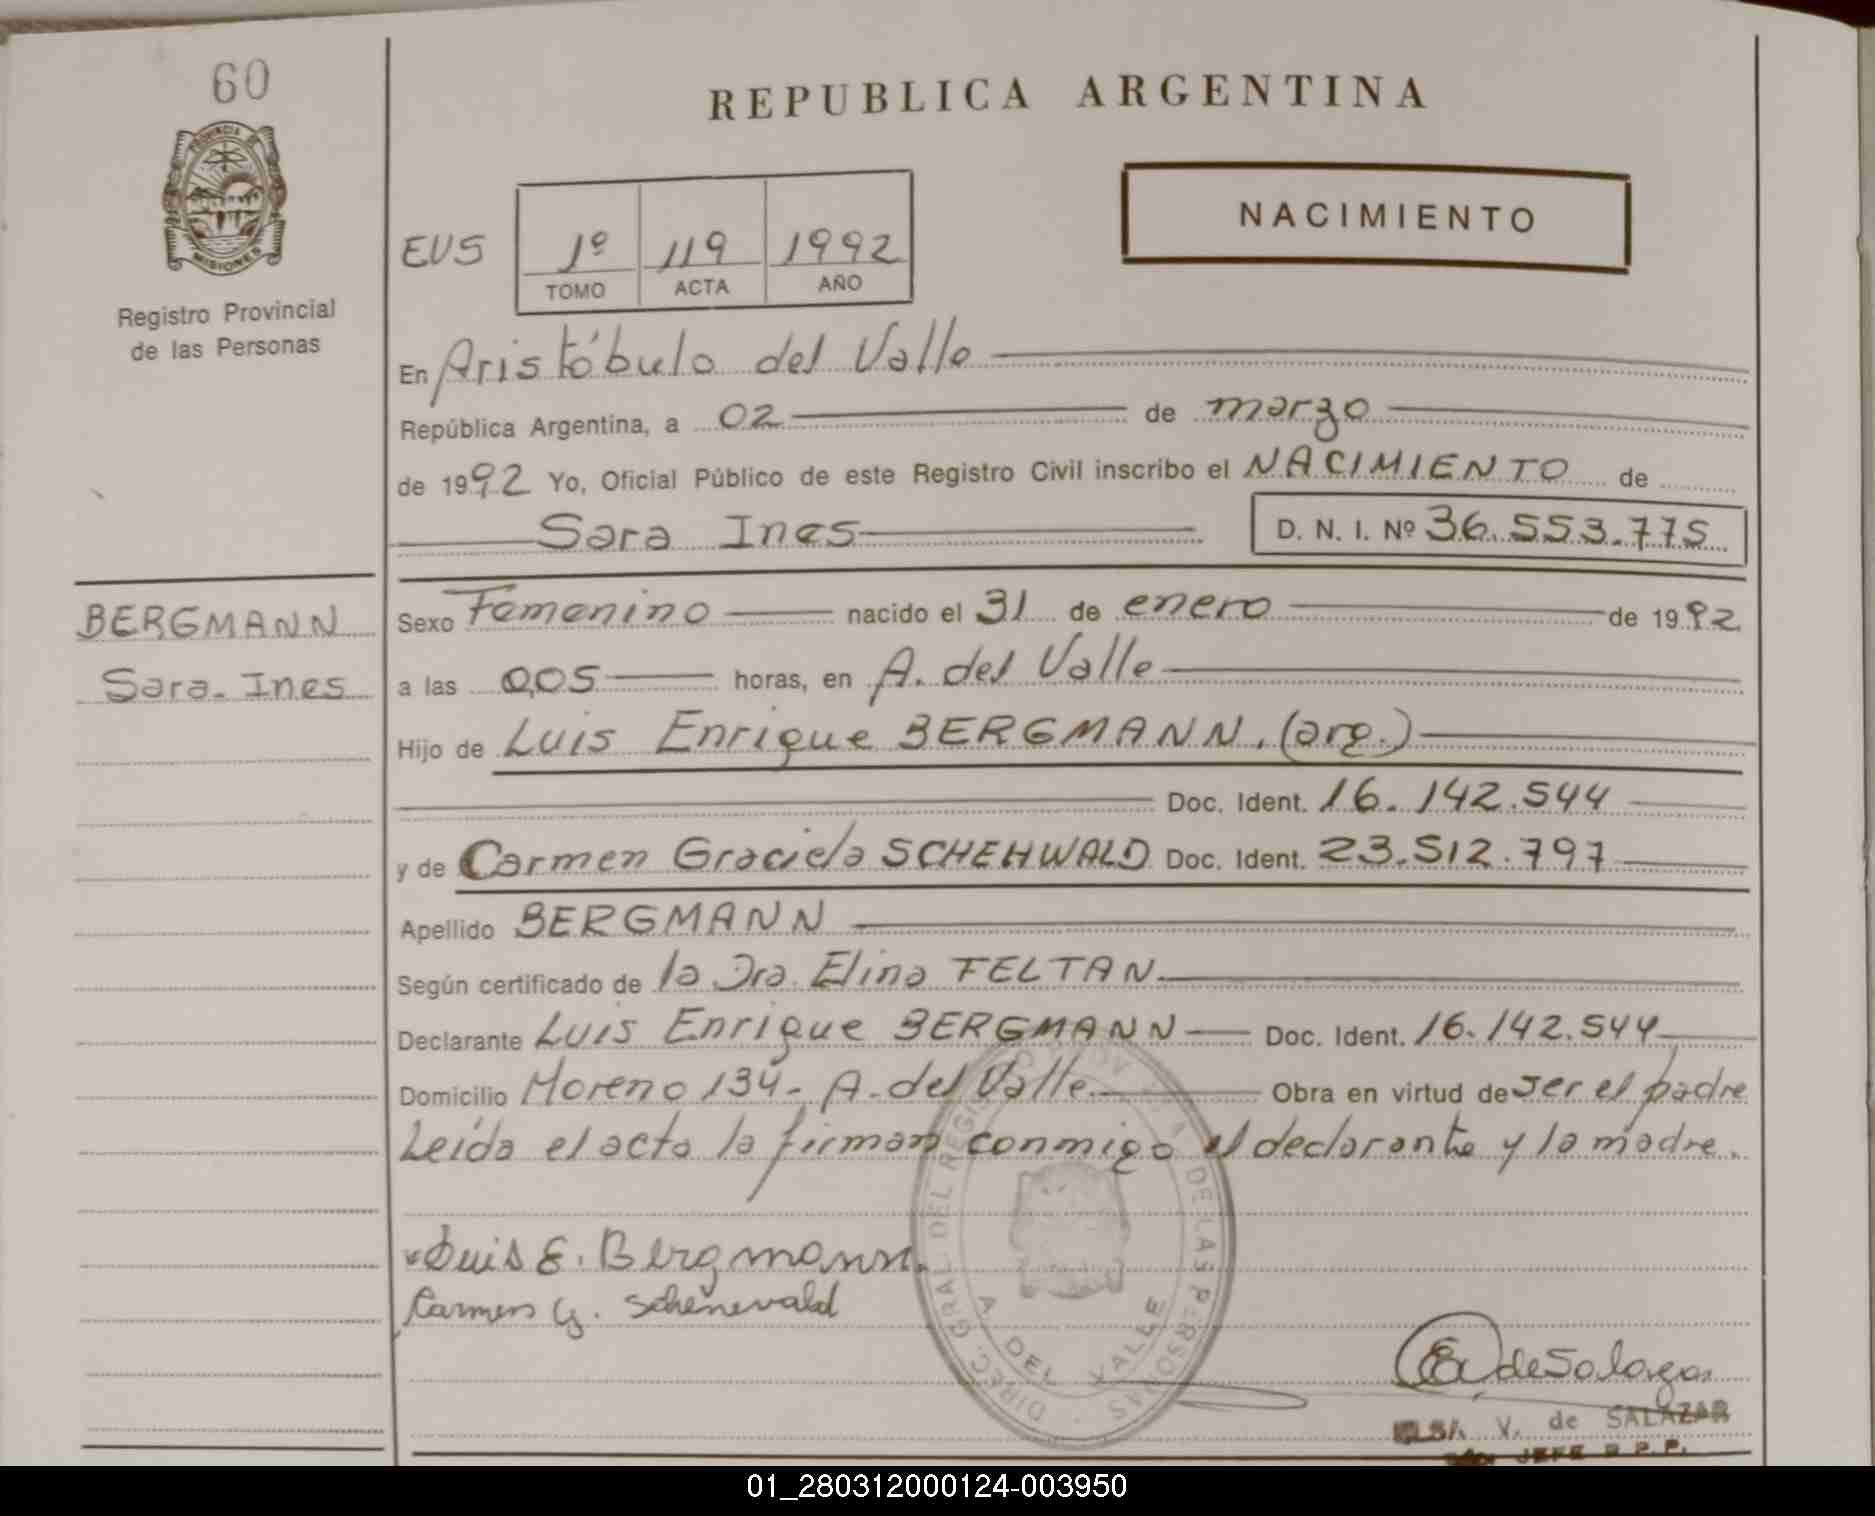 60
PROVINCIA DE
MISIONES
Registro Provincial
de las Personas
BERGMANN
Sara Ines
REPUBLICA ARGENTINA
NACIMIENTO
EUS
1º 119 1992
TOMO ACTA AÑO
En Aristóbulo del Valle
República Argentina, a 02 de marzo
de 1992 Yo, Oficial Público de este Registro Civil inscribo el NACIMIENTO de
Sara Ines D. N. I. Nº 36.553.775
Sexo Femenino nacido el 31 de enero de 1992
a las 0,05 horas, en A. del Valle
Hijo de Luis Enrique BERGMANN. (arg.)
Doc. Ident. 16.142.544
y de Carmen Graciela SCHEHWALD Doc. Ident. 23.512.797
Apellido BERGMANN
Según certificado de la Dra. Elina FELTAN
Declarante Luis Enrique BERGMANN Doc. Ident. 16.142.544
Domicilio Moreno 134- A. del Valle Obra en virtud de ser el padre
Leída el acta la firman conmigo el declarante y la madre.
Luis E. Bergmann.
Carmen G. Schenevald
DIREC. GRAL DEL REGISTRO DE LAS PERSONAS
A DEL VALLE
de Salazar
V. de SALAZAR
JEFE R.P.P.
01_280312000124-003950